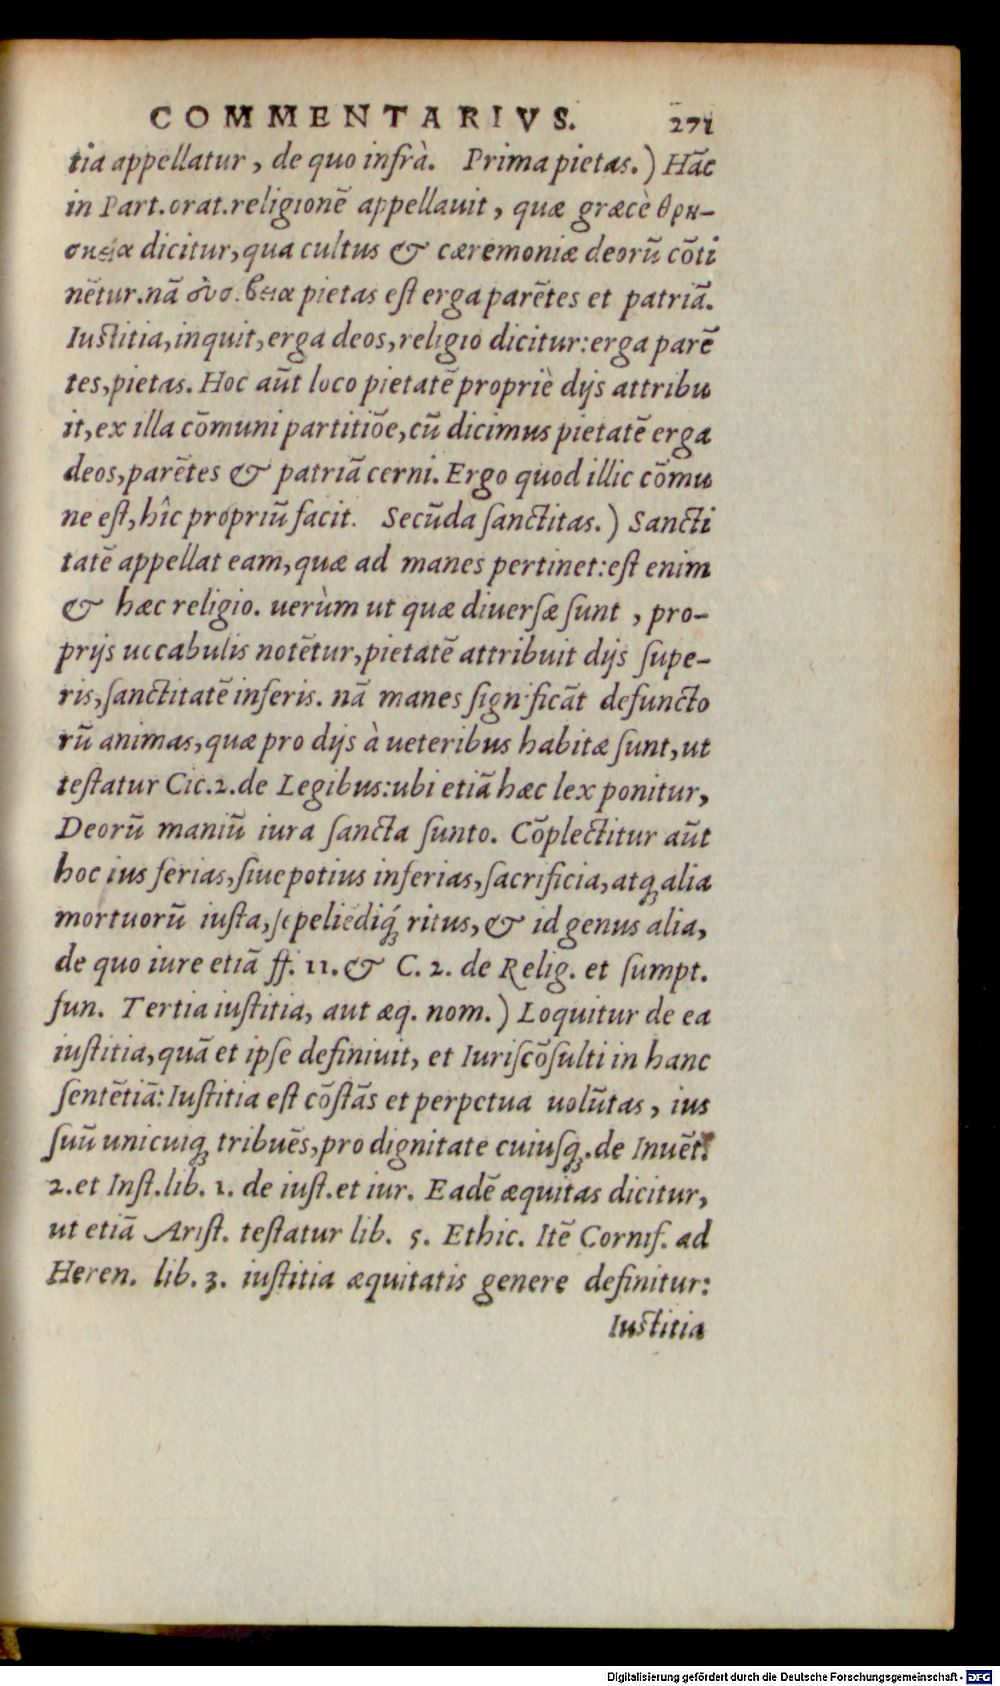 COMMENTARIVS. 271
tia appellatur, de quo infrà. Prima pietas.) Hāc
in Part. orat. religionē appellauit, quæ græcè θρη-
σκεία dicitur, qua cultus & cæremoniæ deorū cōti
nētur. nā εὐσέβεια pietas eſt erga parētes et patriā.
Iuſtitia, inquit, erga deos, religio dicitur: erga parē
tes, pietas. Hoc aūt loco pietatē propriè dijs attribu
it, ex illa cōmuni partitiōe, cū dicimus pietatē erga
deos, parētes & patriā cerni. Ergo quod illic cōmu
ne eſt, hîc propriū facit. Secūda ſanctitas.) Sancti
tatē appellat eam, quæ ad manes pertinet: eſt enim
& hæc religio. uerùm ut quæ diuerſæ ſunt, pro-
prijs uocabulis notētur, pietatē attribuit dijs ſupe-
ris, ſanctitatē inferis. nā manes ſignificāt defuncto
rū animas, quæ pro dijs à ueteribus habitæ ſunt, ut
teſtatur Cic. 2. de Legibus: ubi etiā hæc lex ponitur,
Deorū maniū iura ſancta ſunto. Cōplectitur aūt
hoc ius ferias, ſiue potius inferias, ſacrificia, atq; alia
mortuorū iuſta, ſepeliēdiq́; ritus, & id genus alia,
de quo iure etiā ff. 11. & C. 2. de Relig. et ſumpt.
fun. Tertia iuſtitia, aut æq. nom.) Loquitur de ea
iuſtitia, quā et ipſe definiuit, et Iuriſcōſulti in hanc
ſentētiā: Iuſtitia eſt cōſtās et perpetua uolūtas, ius
ſuū unicuiq; tribuēs, pro dignitate cuiuſq;. de Inuēt.
2. et Inſt. lib. 1. de iuſt. et iur. Eadē æquitas dicitur,
ut etiā Ariſt. teſtatur lib. 5. Ethic. Itē Cornif. ad
Heren. lib. 3. iuſtitia æquitatis genere definitur:
Iuſtitia
Digitalisierung gefördert durch die Deutsche Forschungsgemeinschaft - DFG